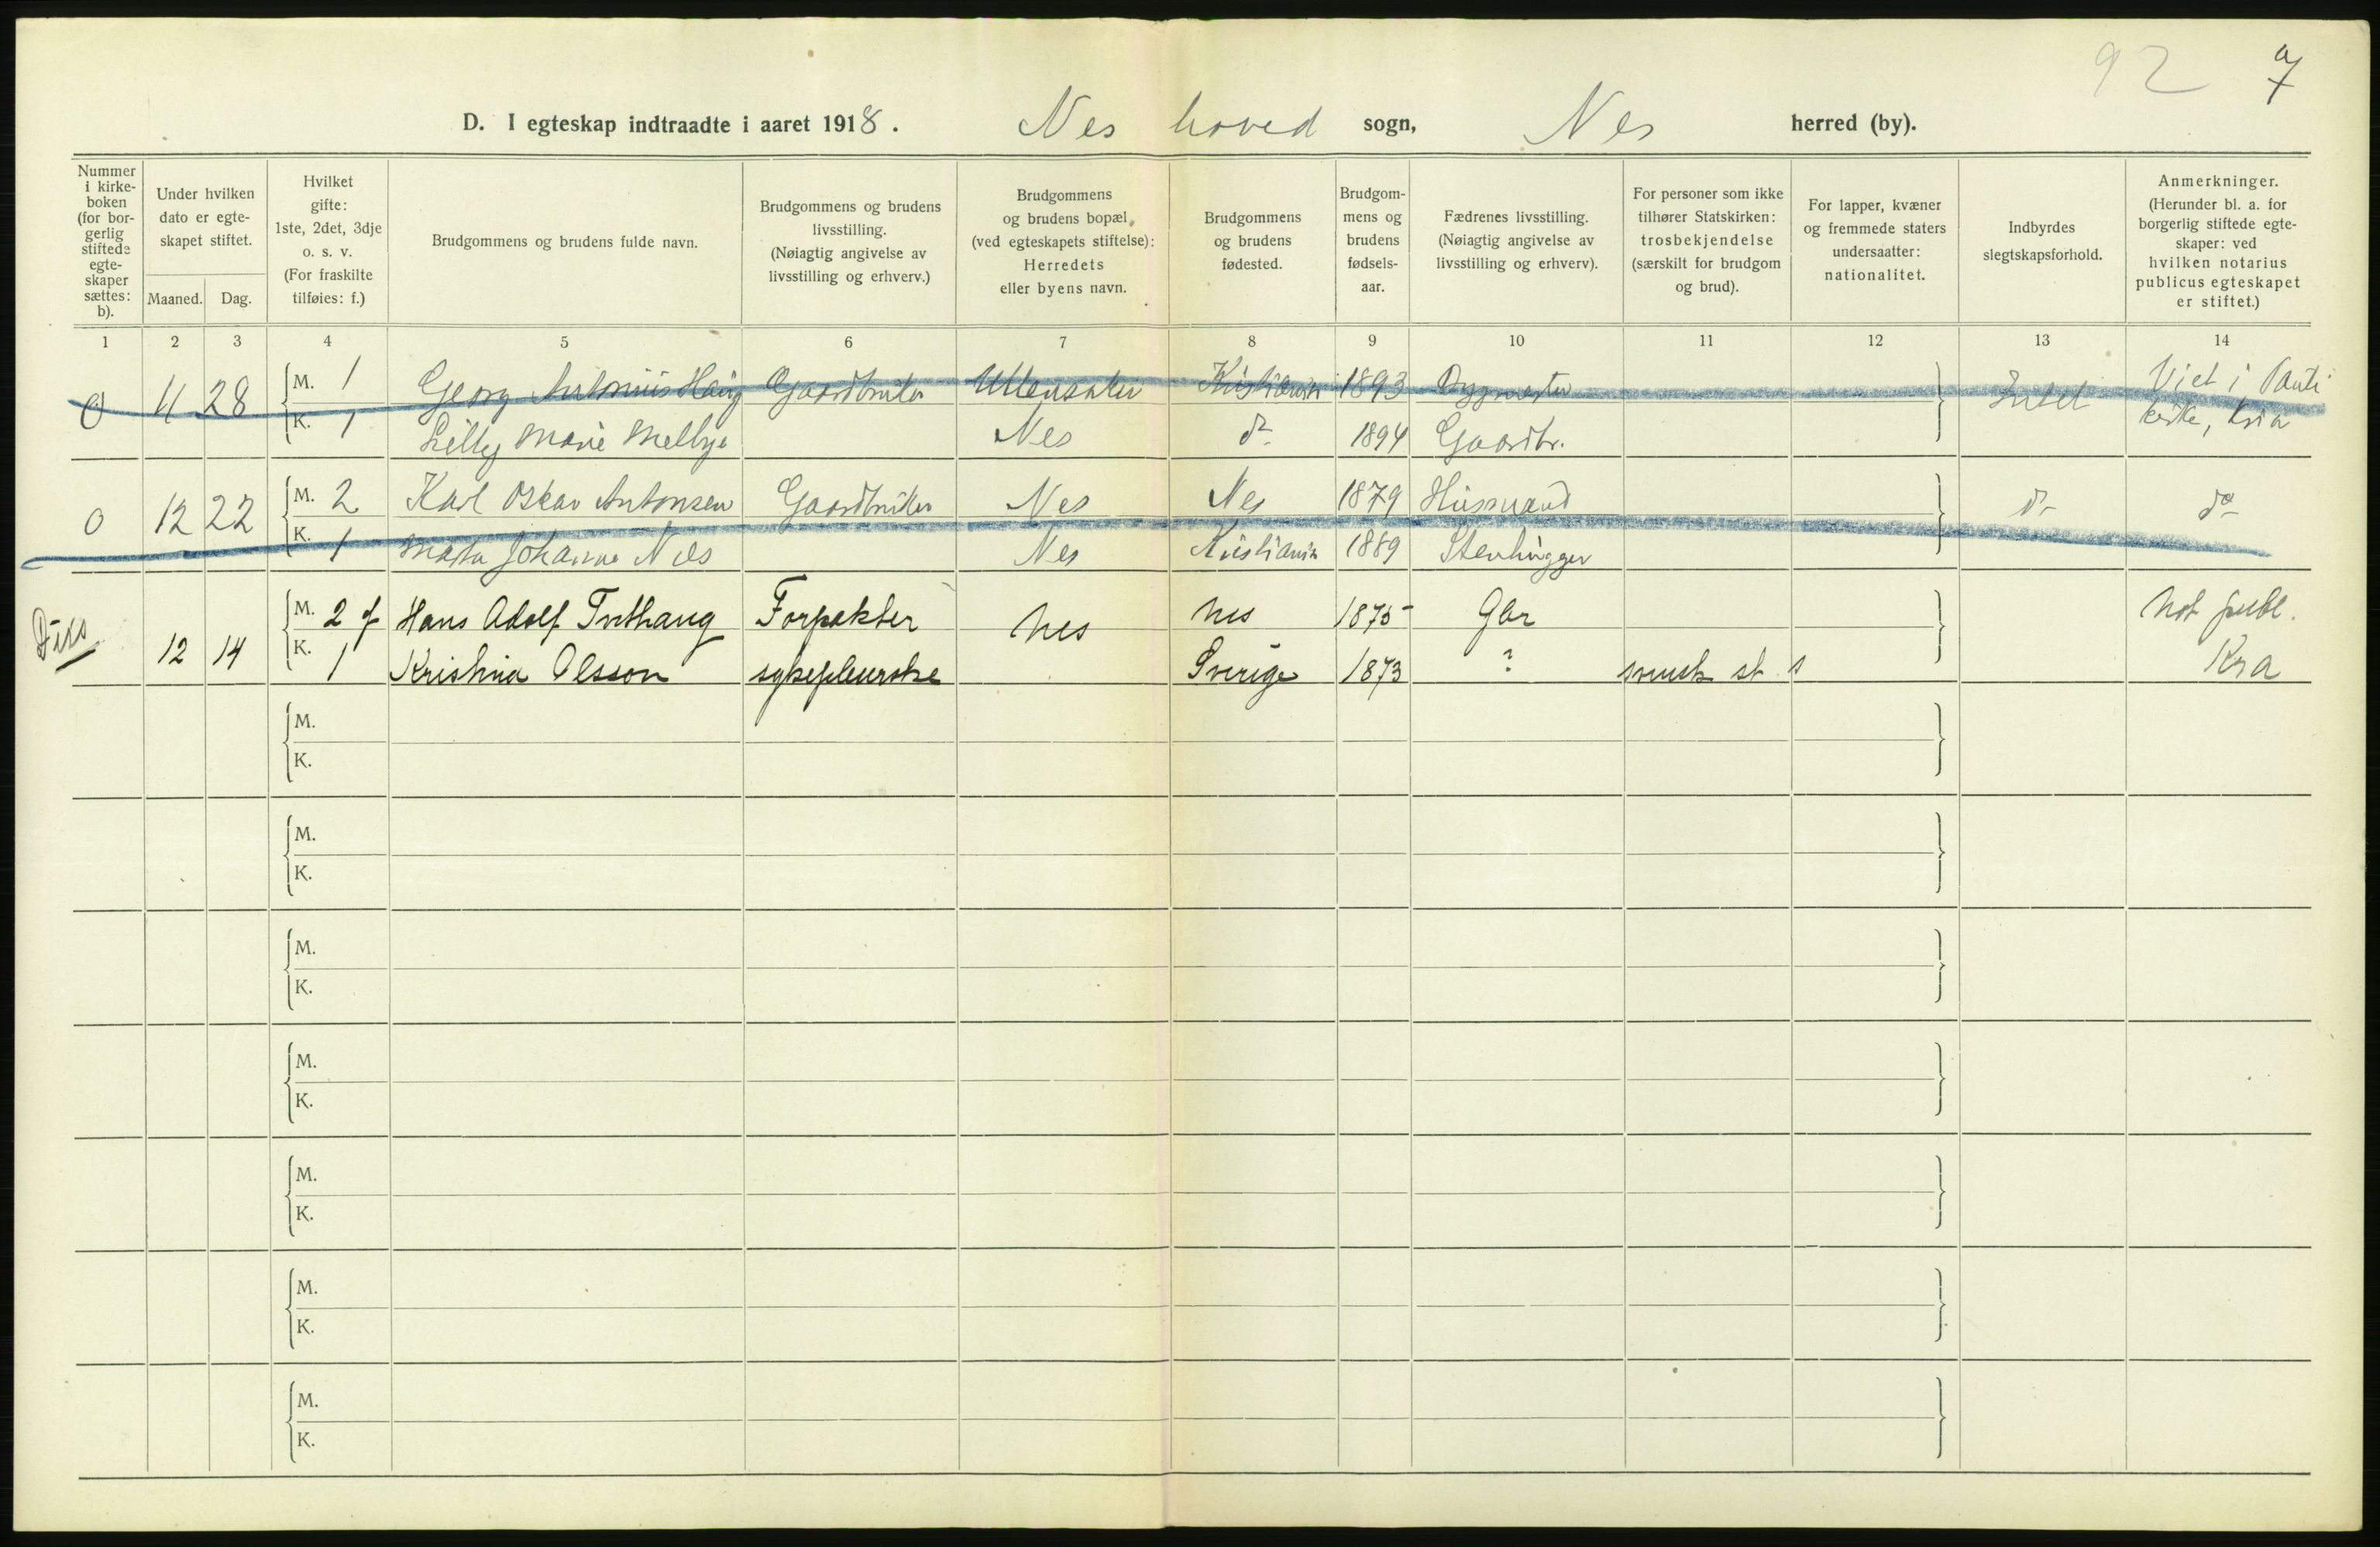 92 7
D. I egteskap indtraadte i aaret 1918. Nes hoved sogn, Nes herred (by).
Nummer i kirke- boken (for bor- gerlig stiftede egte- skaper sættes: b).
Under hvilken dato er egte- skapet stiftet.
Maaned. Dag.
Hvilket gifte: 1ste, 2det, 3dje o. s. v. (For fraskilte tilføies: f.)
Brudgommens og brudens fulde navn.
Brudgommens og brudens livsstilling. (Nøiagtig angivelse av livsstilling og erhverv.)
Brudgommens og brudens bopæl (ved egteskapets stiftelse): Herredets eller byens navn.
Brudgommens og brudens fødested.
Brudgom- mens og brudens fødsels- aar.
Fædrenes livsstilling. (Nøiagtig angivelse av livsstilling og erhverv).
For personer som ikke tilhører Statskirken: trosbekjendelse (særskilt for brudgom og brud).
For lapper, kvæner og fremmede staters undersaatter: nationalitet.
Indbyrdes slegtskapsforhold.
Anmerkninger. (Herunder bl. a. for borgerlig stiftede egte- skaper: ved hvilken notarius publicus egteskapet er stiftet.)
1 2 3 4 5 6 7 8 9 10 11 12 13 14
0 11 28 M. 1 Georg Antonius Haug Gaardbruker Ullensaker Kristiania 1893 Bygmester Intet Viet i Pauls
K. 1 Lilly Marie Melbye Nes do 1894 Gaardbr. kirke, Kria
0 12 22 M. 2 Karl Oskar Antonsen Gaardbruker Nes Nes 1879 Husmand do do
K. 1 Johanne Nes Kristiania 1889 Stenhugger
Diss 12 14 M. 2 f Hans Adolf Forpakter Nes Nes 1875 Gbr Not publ.
K. 1 Kristina Olsson sykepleierske Sverige 1873 ? svensk st s Kra
M.
K.
M.
K.
M.
K.
M.
K.
M.
K.
M.
K.
M.
K.